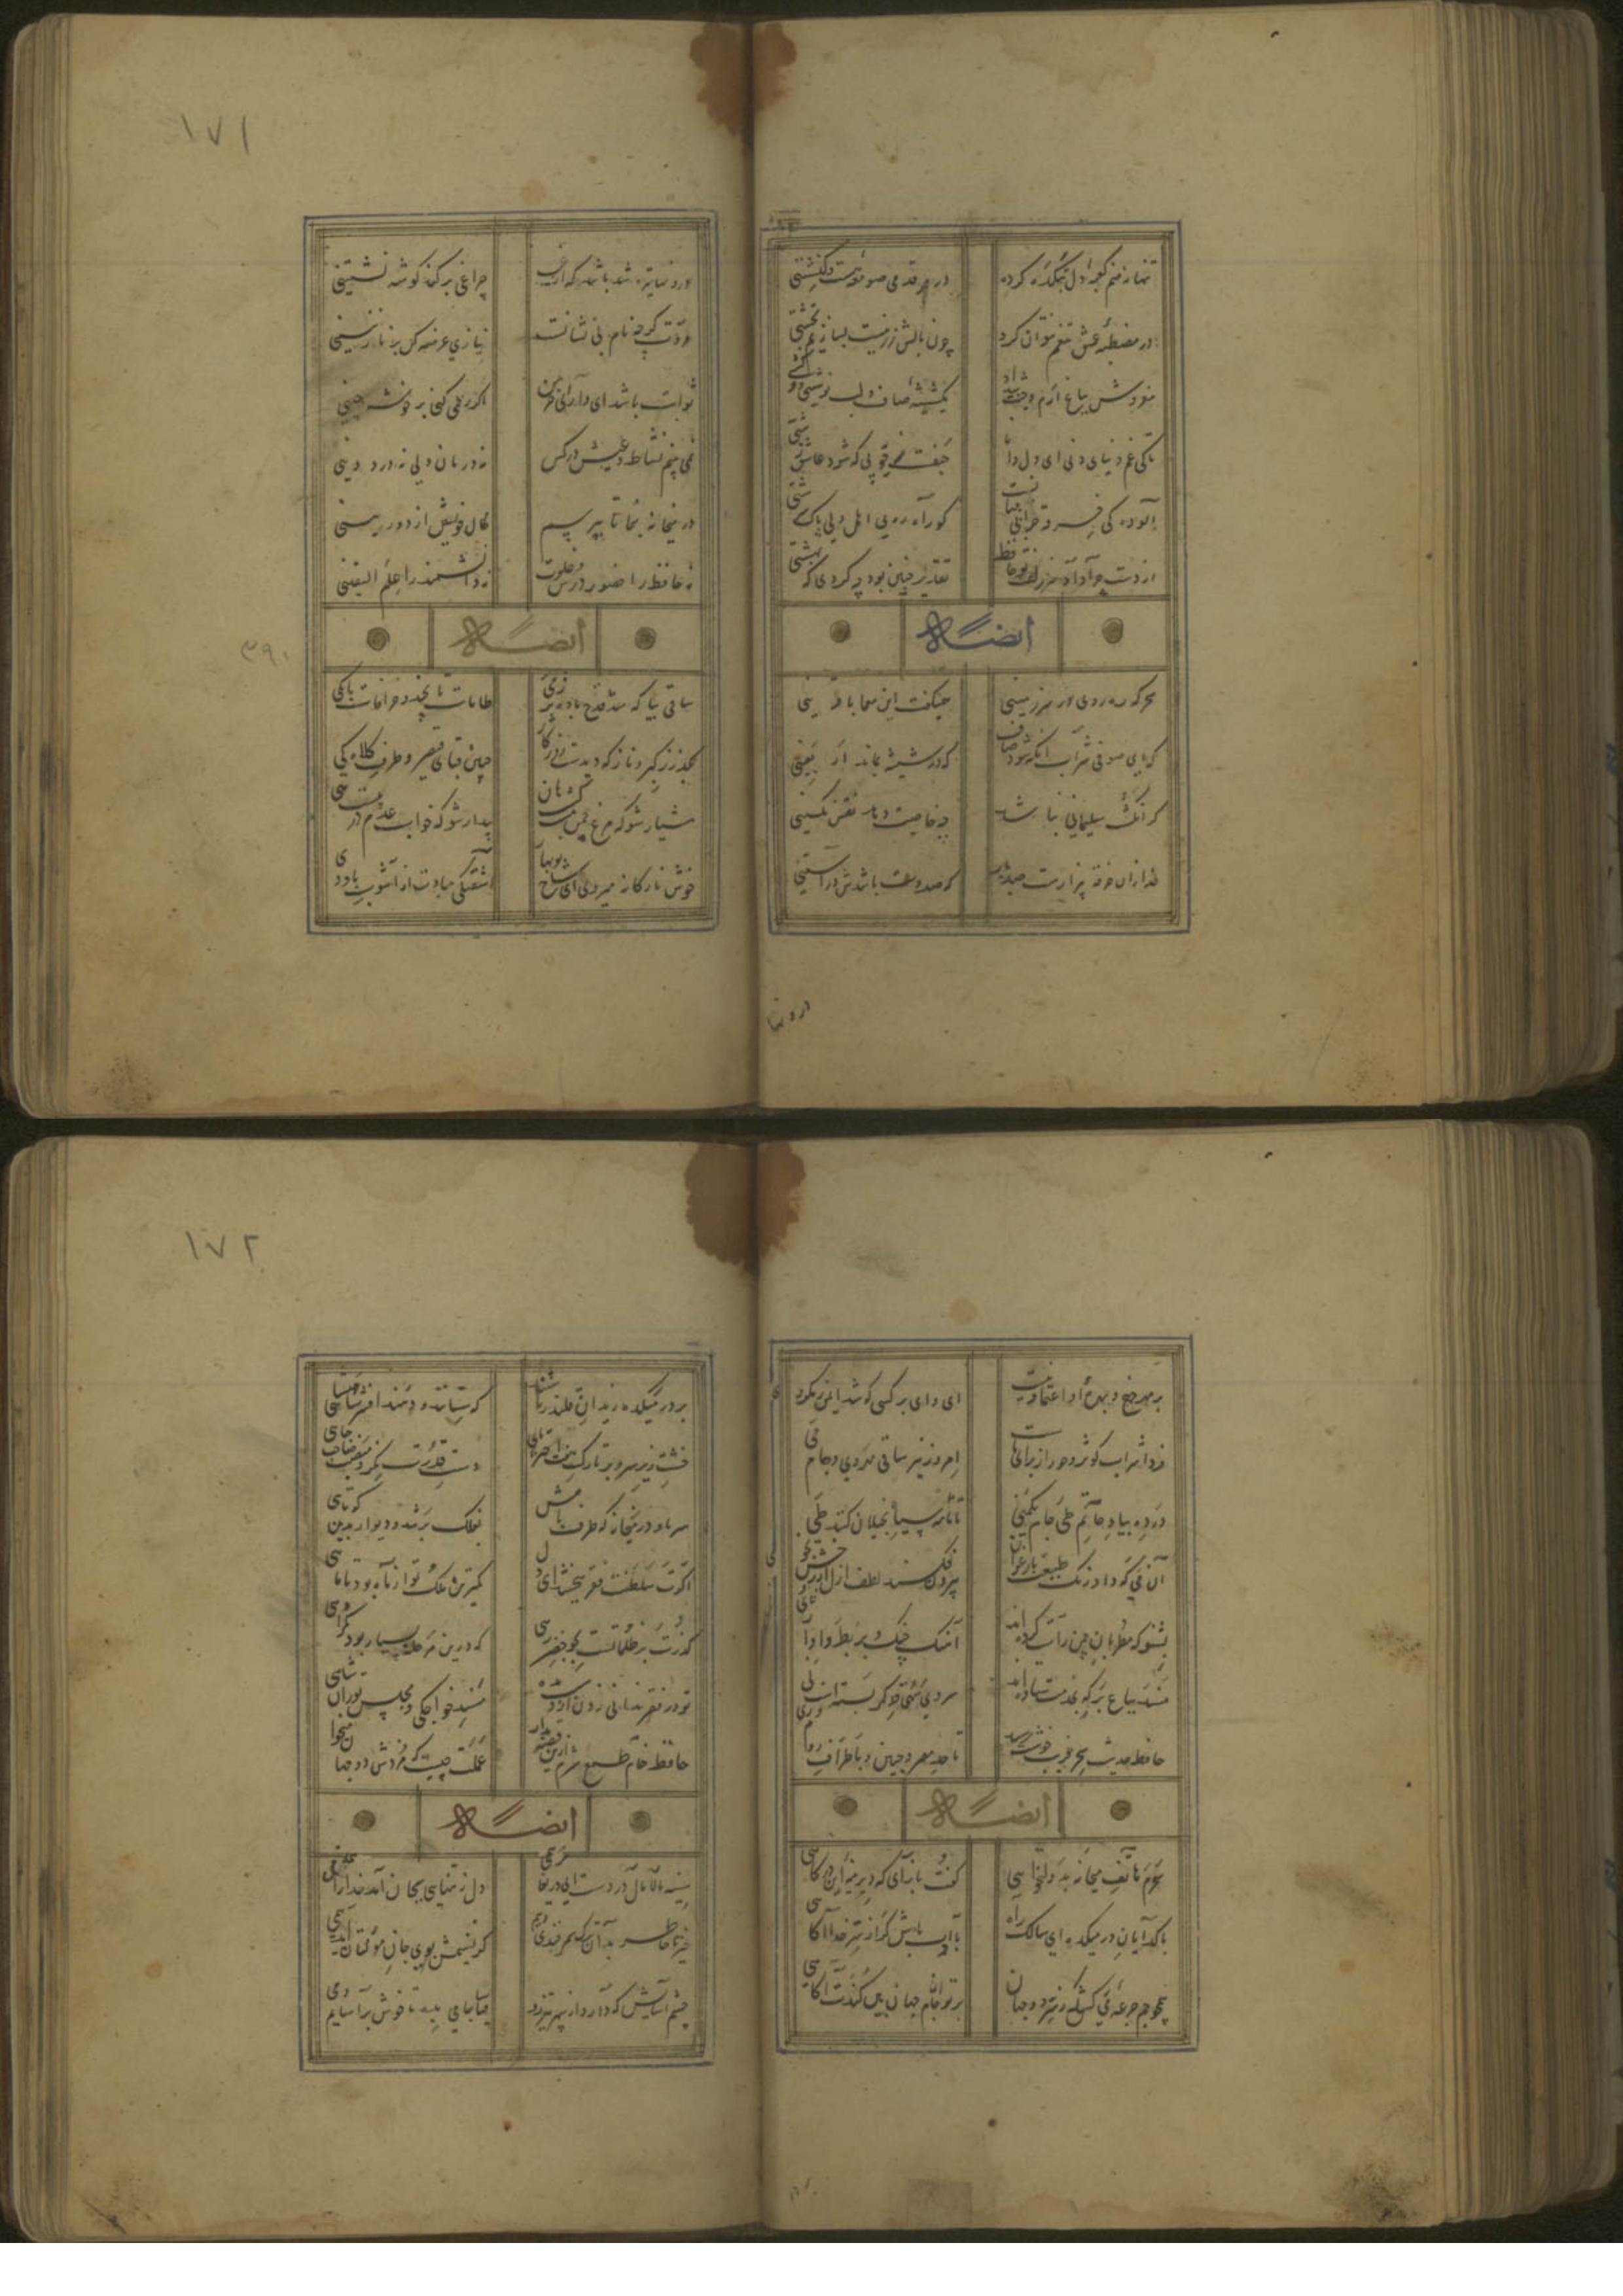 تنها نه منم کعبهٔ دل بتکده کرده در هر قدمی صومعه‌ست و کنشتی
در مصطبهٔ عشق تنعم نتوان کرد چون بالش زر نیست بسازیم بخشتی
مفروش بباغ ارم و شداد یک شیشهٔ صاف و لب نوشی و
تا کی غم دنیای دنی ای دل دانا حیفست ز خوبی که شود عاشق زشتی
آلوده کی خرقه خرابی جهانست کو راه روی اهل دلی پاک سرشتی
از دست چرا داد سر زلف تو حافظ تقدیر چنین بود چه کردی که بهشتی
ایضاً له
سحرکه ره روی در سرزمینی همیکفت این معما با قرینی
که ای صوفی شراب آنکه شود صاف که در شیشه بماند اربعینی
کر انکشت سلیمانی نباشد چه خاصیت دهد نقش نکینی
خدا زان خرقه بیزارست صد بار که صد بت باشدش در آستینی
درونها
۱۷۱
درونها تیره شد باشد که از غیب چراغی بر کند کوشه نشینی
مروت کرچه نام بی نشانست نیازی عرضه کن بر نازنینی
ثوابت باشد ای دارای خرمن اکر رحمی کنی بر خوشه چینی
نمی بینم نشاط و عیش در کس نه درمان دلی نه درد دینی
در میخانه بنما تا بپرسیم مآل خویش از دوربینی
نه حافظ را حضور درس و خلوت نه دانشمند را علم الیقینی
ایضاً له
۳۹۰
ساقی بیا که شد قدح باده پر ز می طامات تا بچند و خرافات تا بکی
بکذر ز کبر و ناز که دیدست روزکار چین قبای قیصر و طرف کلاه کی
هشیار شو که مرغ چمن مست کشت هان بیدار شو که خواب عدم در پیست هی
خوش نازکانه میروی ای شاخ نوبهار آشفتکی مبادت از آشوب باد دی
بر مهر چرخ و بهرهٔ او اعتماد نیست ای وای بر کسی که شد ایمن ز مکر وی
فردا شراب کوثر و حور از برای ماست امروز نیز ساقی مه روی و جام می
درده بیاد حاتم طی جام یکمنی تا نامه سیاه بخیلان کنند طی
آن می که داد رنک طبیعت بارغوان بیرون فکند لطف از رخش بخوی
بشنو که مطربان چمن راست کرده اند آهنک چنک و بربط و آوای نای
مسند بباغ بر که بخدمت ستاده اند سرو سهی چو کمر بسته است نی
حافظ حدیث سحر فریب خوشت رسید تا حد مصر و چین و باطراف روم و ری
ایضاً له
سحرم هاتف میخانه بدولتخواهی کفت باز آی که دیرینه این درکاهی
با کدایان در میکده ای سالک راه باادب باش کر از سر خدا آکاهی
همچو جم جرعهٔ می کش که ز سر دو جهان پرتو جام جهان بین کندت آکاهی
۱۷۲
بر در میکده رندان قلندر باشند که ستانند و دهند افسر شاهنشاهی
خشت زیر سر و بر تارک هفت اختر پای دست قدرت نکر و منصب صاحب جاهی
سر ما و در میخانه که طرف بامش بفلک بر شد و دیوار بدین کوتاهی
اکرت سلطنت فقر ببخشند ای دل کمترین ملک تو از ماه بود تا ماهی
کذرت بر ظلماتست بجو خضر رهی که درین مرحله بسیار بود کمراهی
تو در فقر ندانی زدن از دست مده مسند خواجکی و مجلس توران شاهی
حافظ خام طمع شرم ازین قصه بدار عملت چیست که مزدش دو جهان میخواهی
ایضاً له
سینه مالامال دردست ای دریغا مرهمی دل ز تنهایی بجان آمد خدا را همدمی
خیز تا خاطر بدان ترک سمرقندی دهیم کز نسیمش بوی جوی مولیان آید همی
چشم آسایش که دارد از سپهر تیزرو ساقیا جامی بده تا خوش برآسایم دمی